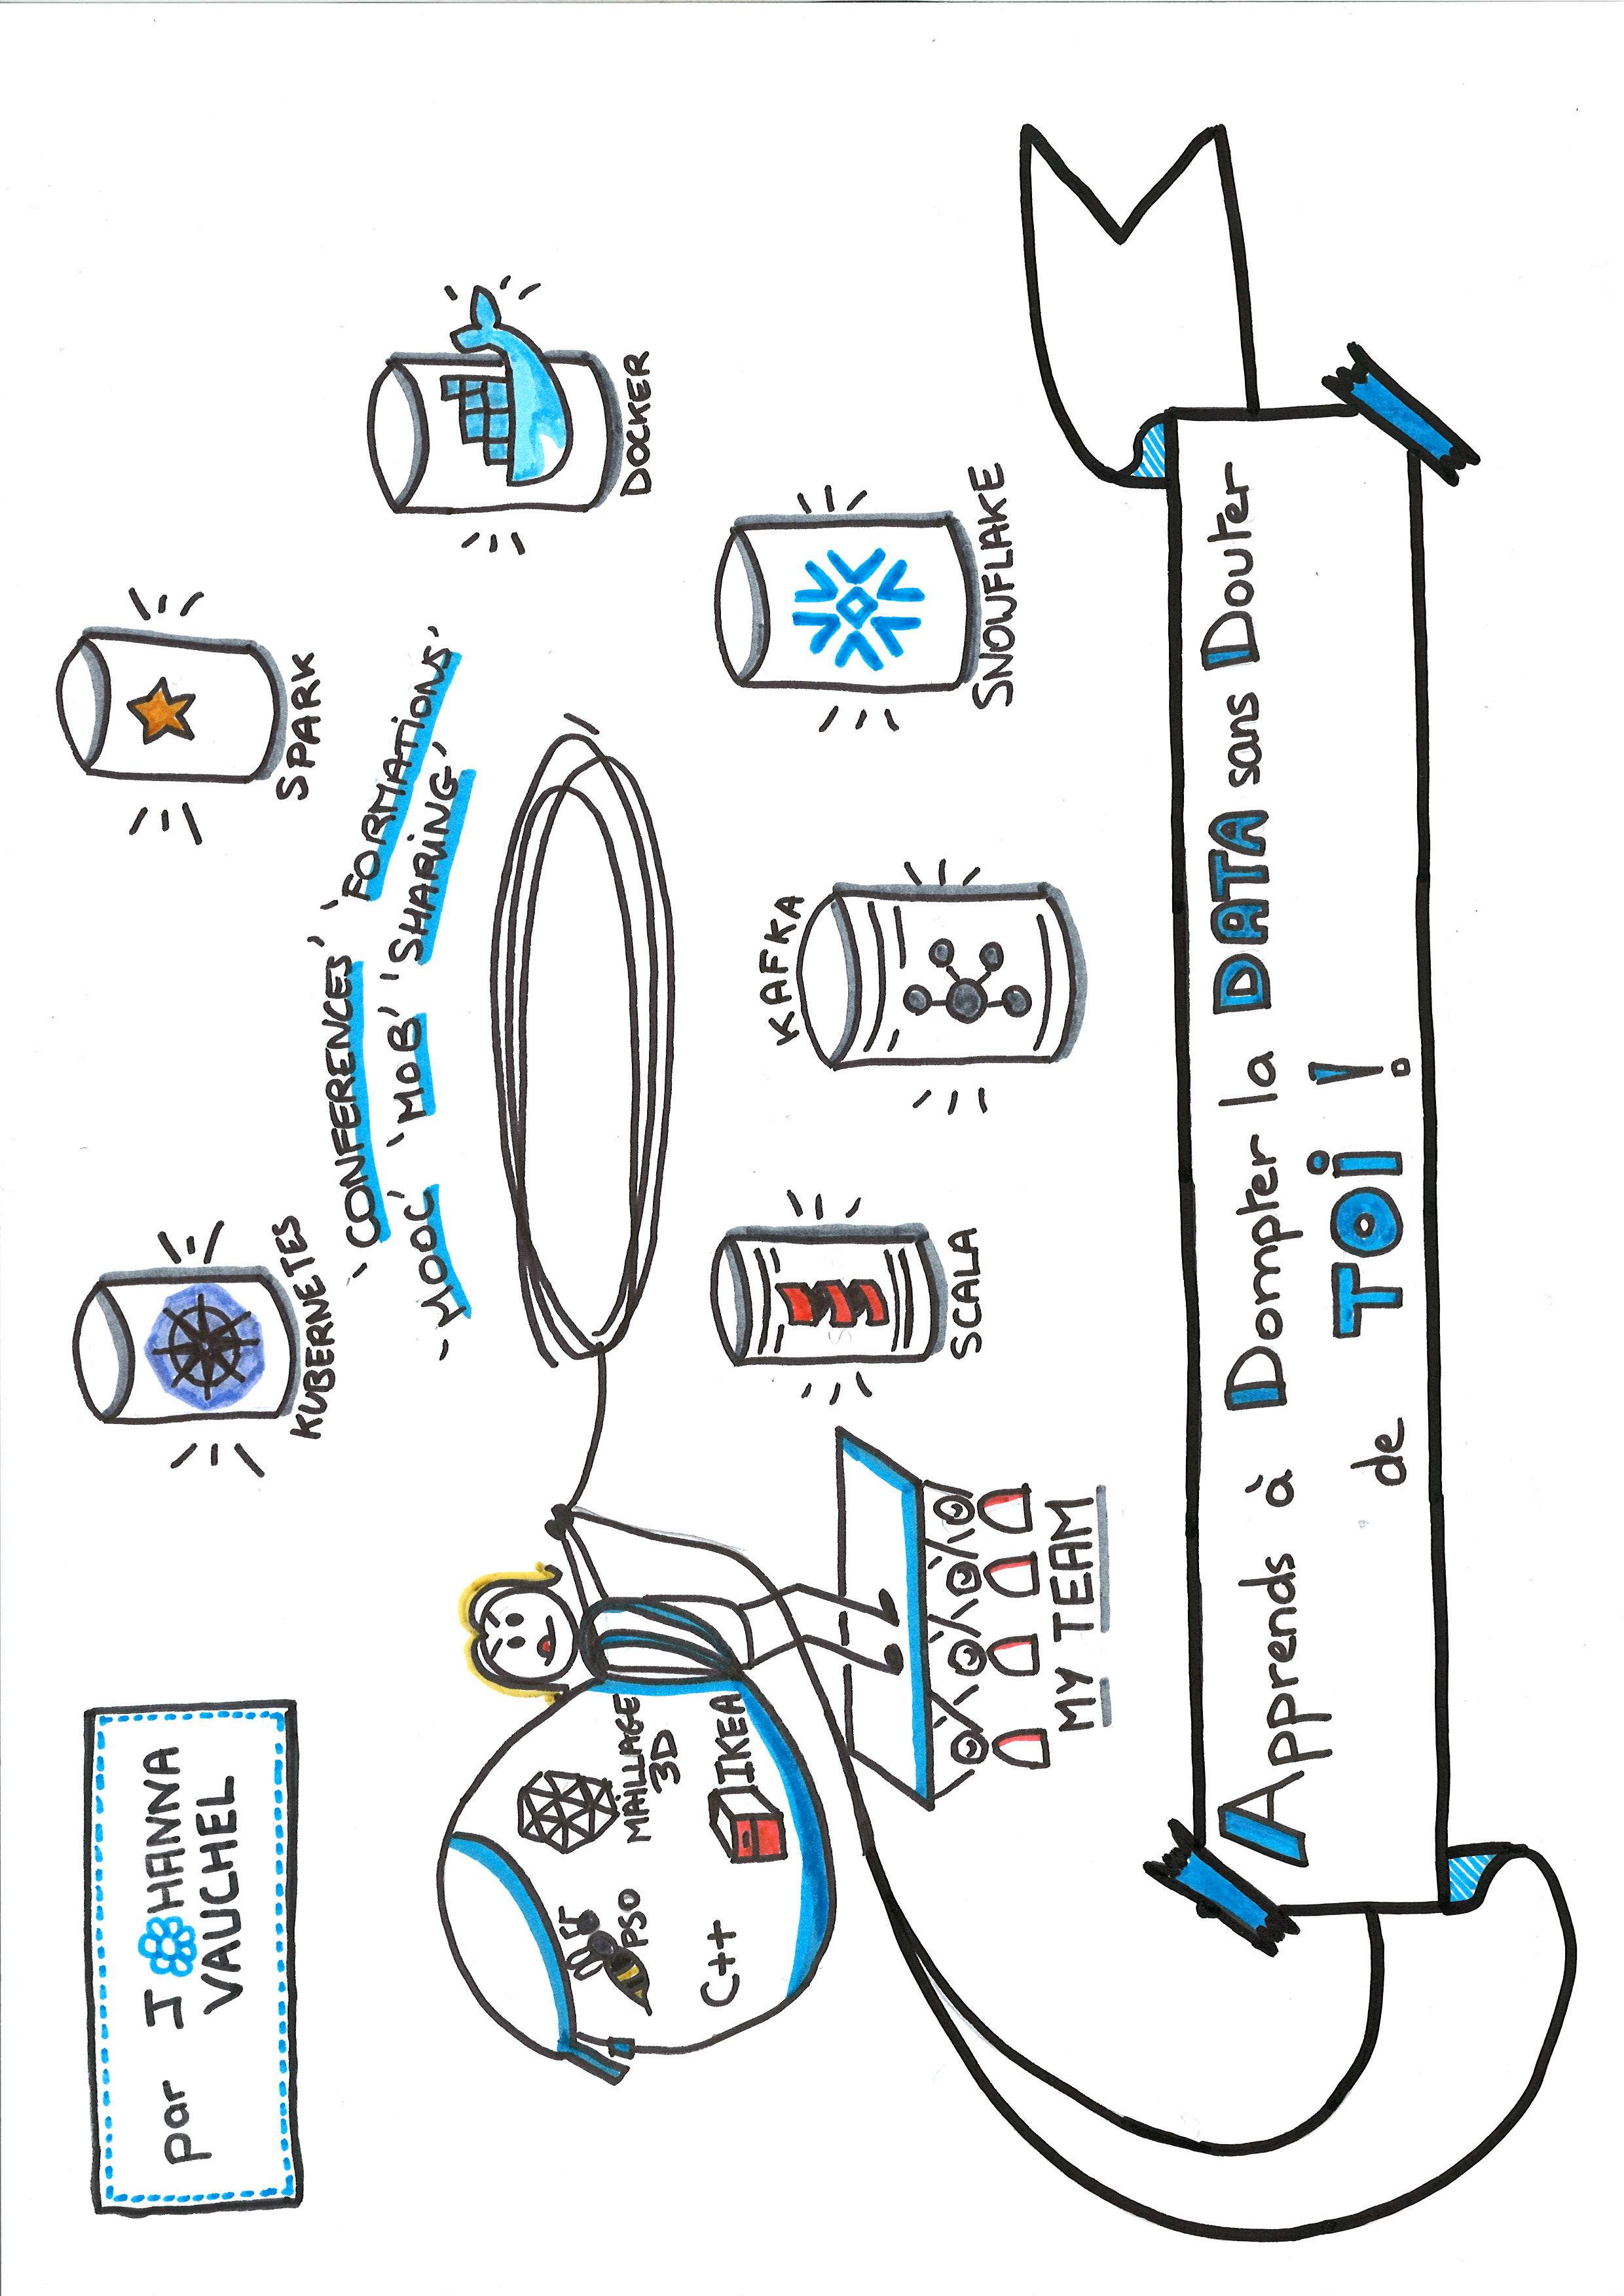 par JOHANNA
VAUCHEL
KUBERNETES
SPARK
'CONFERENCES' 'FORMATIONS'
'MOOC' 'MOB' 'SHARiNG'
DOCKER
PSO
MAiLLAGE
3D
C++
IKEA
SCALA
KAFKA
SNOWFLAKE
MY TEAM
Apprends à Dompter la DATA sans Douter
de TOi !